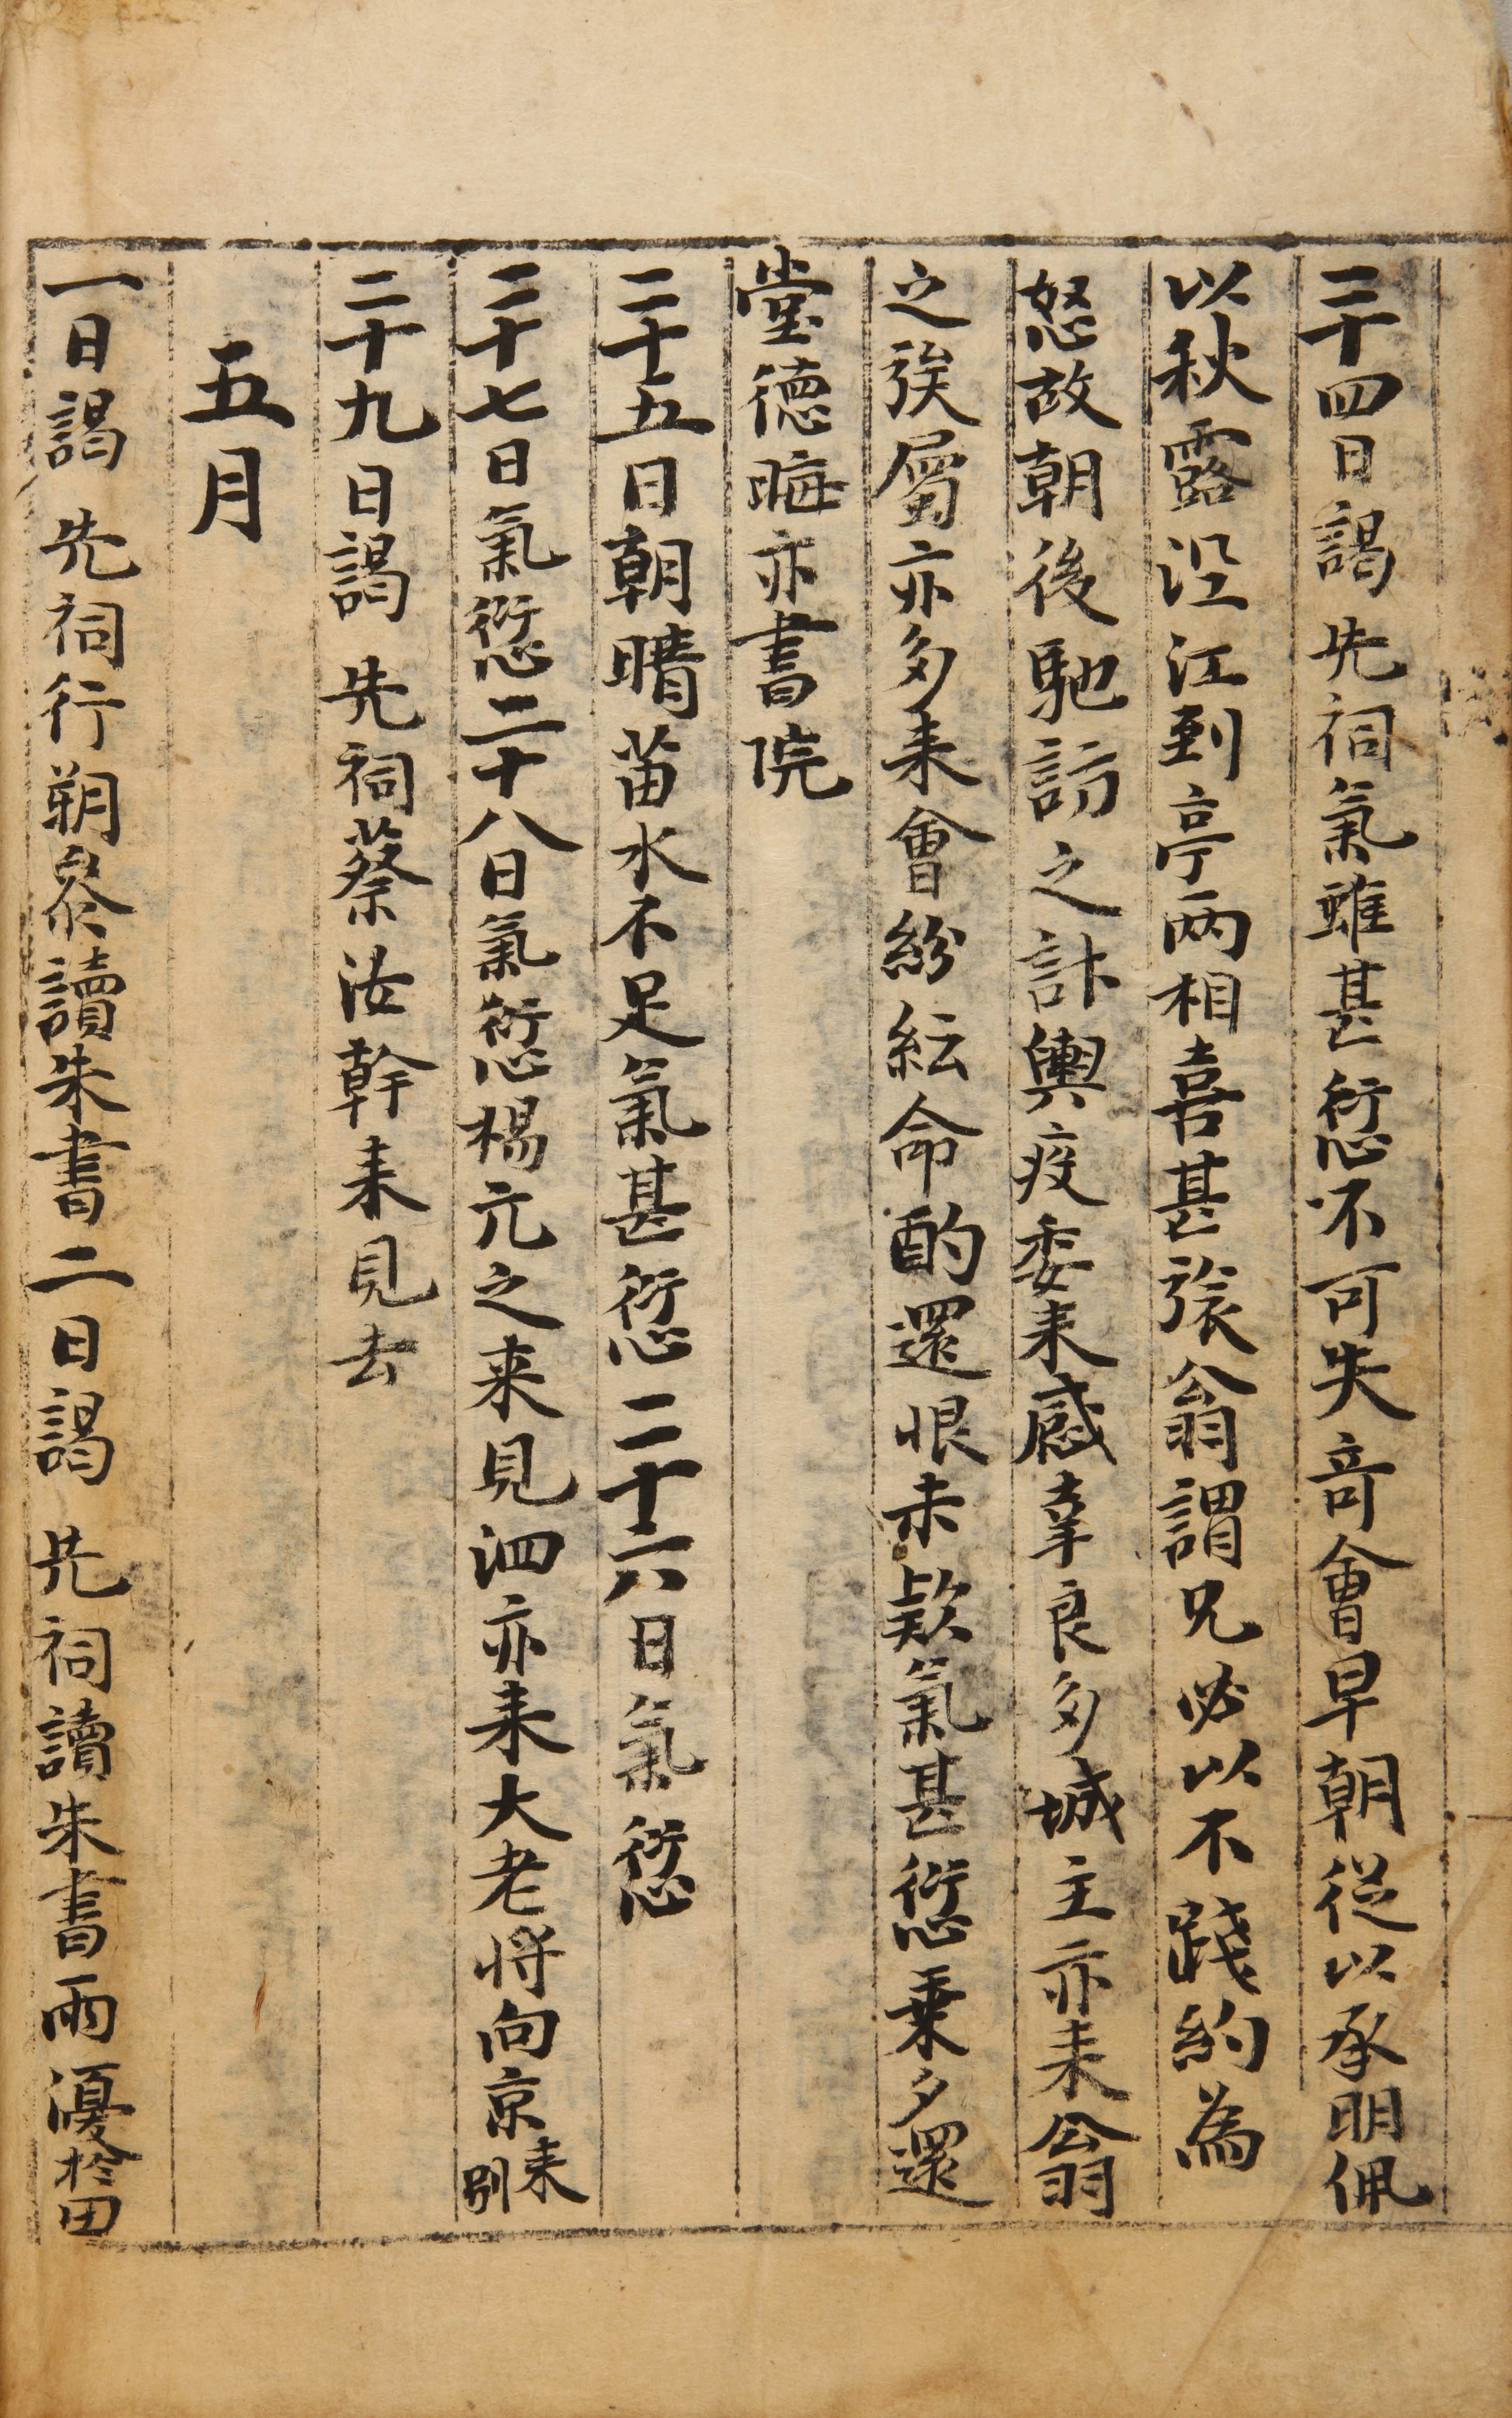 二十四日謁 先祠氣雖甚愆不可失奇會早朝從以承明佩
以秋露沿江到亭兩相喜甚張翁謂兄必以不踐約為
怒故朝後馳訪之計輿疾委来感幸良多城主亦来翁
之族屬亦多来會紛紜命酌還恨未款氣甚愆乗夕還
堂德晦亦書院
二十五日朝晴苗水不足氣甚愆二十六日氣愆
二十七日氣愆二十八日氣愆楊亢之来見泗亦来大老将向京来別
二十九日謁 先祠蔡汝幹来見去
五月
一日謁 先祠行朔叅讀朱書二日謁 先祠讀朱書雨優於田